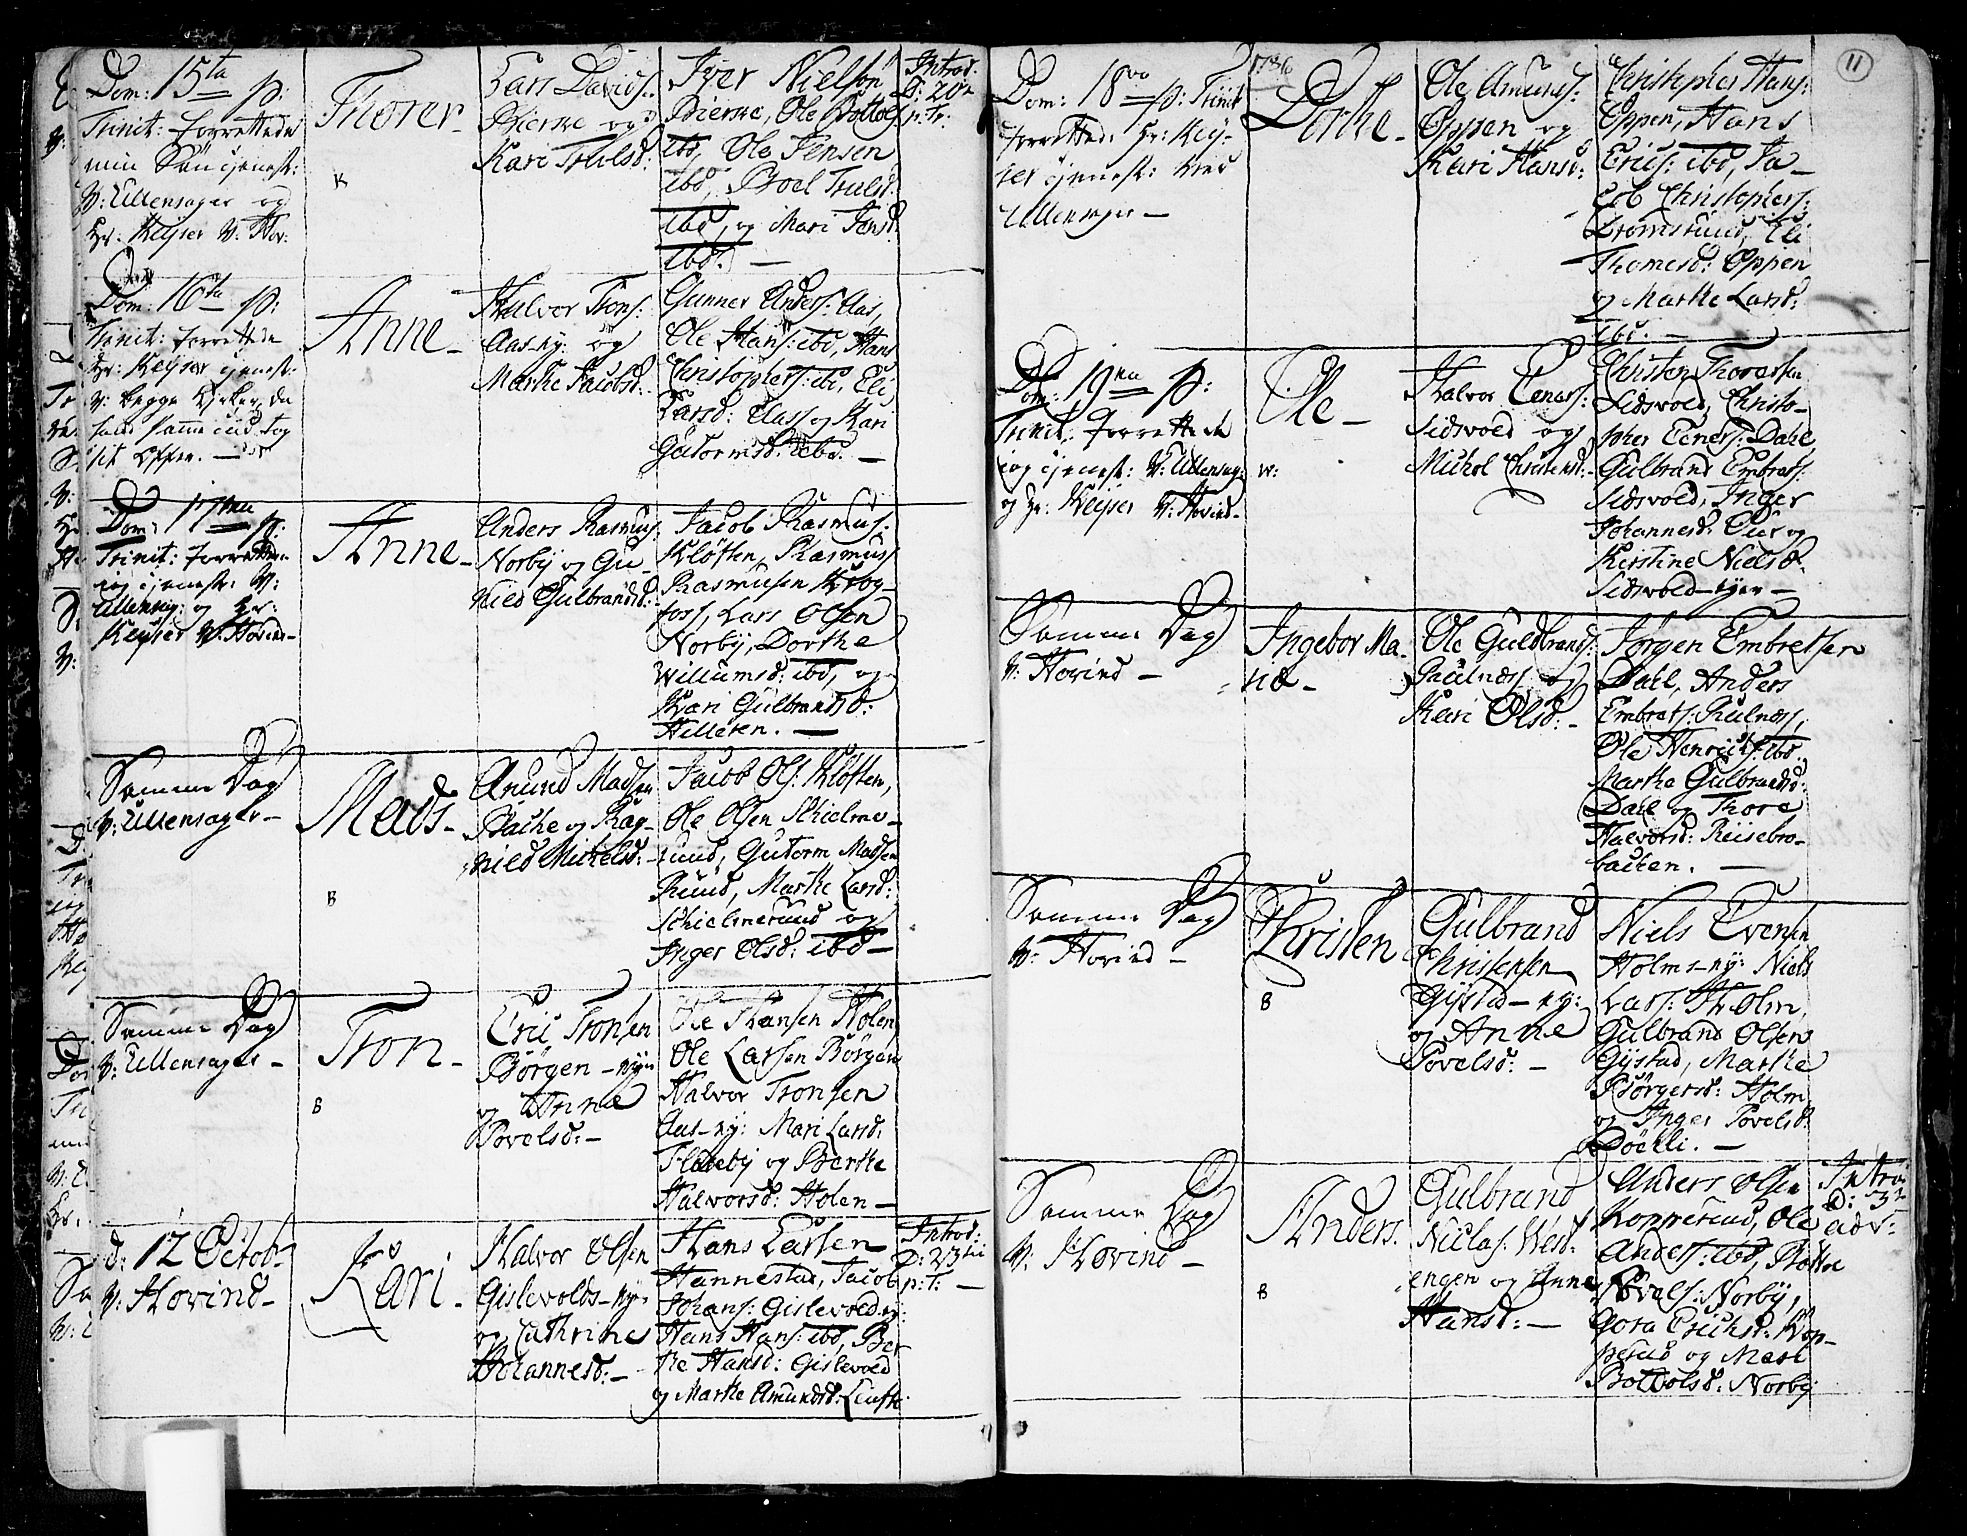 Dom: 15ta p:
Trinit: forrettede
min Sön tjenest:
V: Ullensager og
Hr: Keyser V: Hov:
Thorer
K
Lars Davids:
Bierke og
Kari Trulsd:
Iver Nielsen
Bierke, Ole Bottols
ibd, Ole Jensen
ibd, Boel Trulsd:
ibd, og Mari Jensd:
ibd. —
Introd:
D: 20 
p: Tr:
Dom: 16ta p:
Trinit: forrettede
Hr: Keyser tjenest:
V: begge Kirker, da
hand samme tiid tog
sit Offer. —
Anne
Halvor Trons:
Aas-ny: og
Marthe Jacobsd:
Gunner Anders: Aas,
Ole Hans: ibd, Hans
Christophers: ibd, Eli
Larsd: Aas og Kari
Gutormsd: ibd. —
Dom: 17ma p:
Trinit: forrettede
iog tjenest: V:
Ullensag: og Hr:
Keyser V: Hovind —
Anne
Anders Rasmus:
Norby og Gu-
nild Gulbrandsd:
Jacob Rasmus:
Kløften, Rasmus
Rasmusen Krog-
foss, Lars Olsen
Norby, Dorthe
Willumsd: ibd, og
Kari Gulbrandsd:
Hilleren. —
Samme Dag
V: Ullensager —
Mads
B
Amund Madsen
Bache og Rag-
nild Mickelsd:
Jacob Ols: Kløften,
Ole Olsen Schielme-
ruud, Gutorm Madsen
Ruud, Marthe Larsd:
Schielmeruud og
Inger Olsd: ibd —
Samme Dag
V: Ullensager —
Tron
B
Eric Tronsen
Børgen — ny:
og Anne
Povelsd: —
Ole Hansen Holen,
Ole Larsen Børgen
Halvor Tronsen
Aas-ny: Mari Larsd:
Fladeby og Berthe
Halvorsd: Holen —
d: 12 Octob-
V: Hovind —
Kari
Halvor Olsen
Gislevolds-ny:
og Cathrine
Johannesd: —
Hans Larsen
Hannestad, Jacob
Johans: Gislevold ny:
Hans Hans: ibd, Ber-
the Hansd: Gislevold
og Marthe Amundsd:
Introd:
D: 23tii
p: T: —
11
1736
Dom: 18va p: Trinit
forrettede Hr: Key-
ser tjenest: ved
Ullensager —
Dorthe
Ole Amunds:
Oppen og
Kari Hansd:
Christopher Hans:
Oppen, Hans
Erics: ibd, Ja-
cob Christophers:
Dromsruud, Eli
Thomesd: Oppen
og Marthe Larsd:
ibd: —
Dom: 19na p:
Trinit. forrettede
iog tjenest: V: Ullensag:
og Hr: Keyser V: Hovind —
Ole
w:
Halvor Eenars:
Sidsvold og
Michol Christensd:
Christen Thorersen
Sidsvold, Christo-
pher Eeners: Dahl
Gulbrand Embrets:
Sidsvold, Inger
Johannesd: Oier og
Kirstine Nielsd:
Sidsvold-eyer —
Samme Dag
V: Hovind —
Ingebor Ma-
rie
Ole Guldbrands:
Guulnæss og
Kari Olsd: —
Jørgen Embretsen
Dahl, Anders
Embrets: Kulness,
Ole Henrichs: ibd.
Marthe Gulbrandsd:
Dahl og Thore
Halvorsd: Riisebro-
backen. —
Samme Dag
V: Hovind —
Kristen
B
Gulbrand
Christensen
Gystad — ny:
og Anne
Povelsd: —
Niels Evensen
Holms-ny: Niels
Lars: Holm,
Gulbrand Olsen
Gystad, Marthe
Børgersd: Holm
og Inger Povelsd:
Døhli. —
Samme Dag
V: Hovind —
Anders
B
Gulbrand
Niclas: West-
engen og Anne
Hansd: —
Anders Olsen
Kopperud, Ole
Anders: ibd, Botle
Povels: Norby,
Gora Erichsd: Kop-
perud og Mari
Bottolsd: Norby
Introd
D: 3
adv: